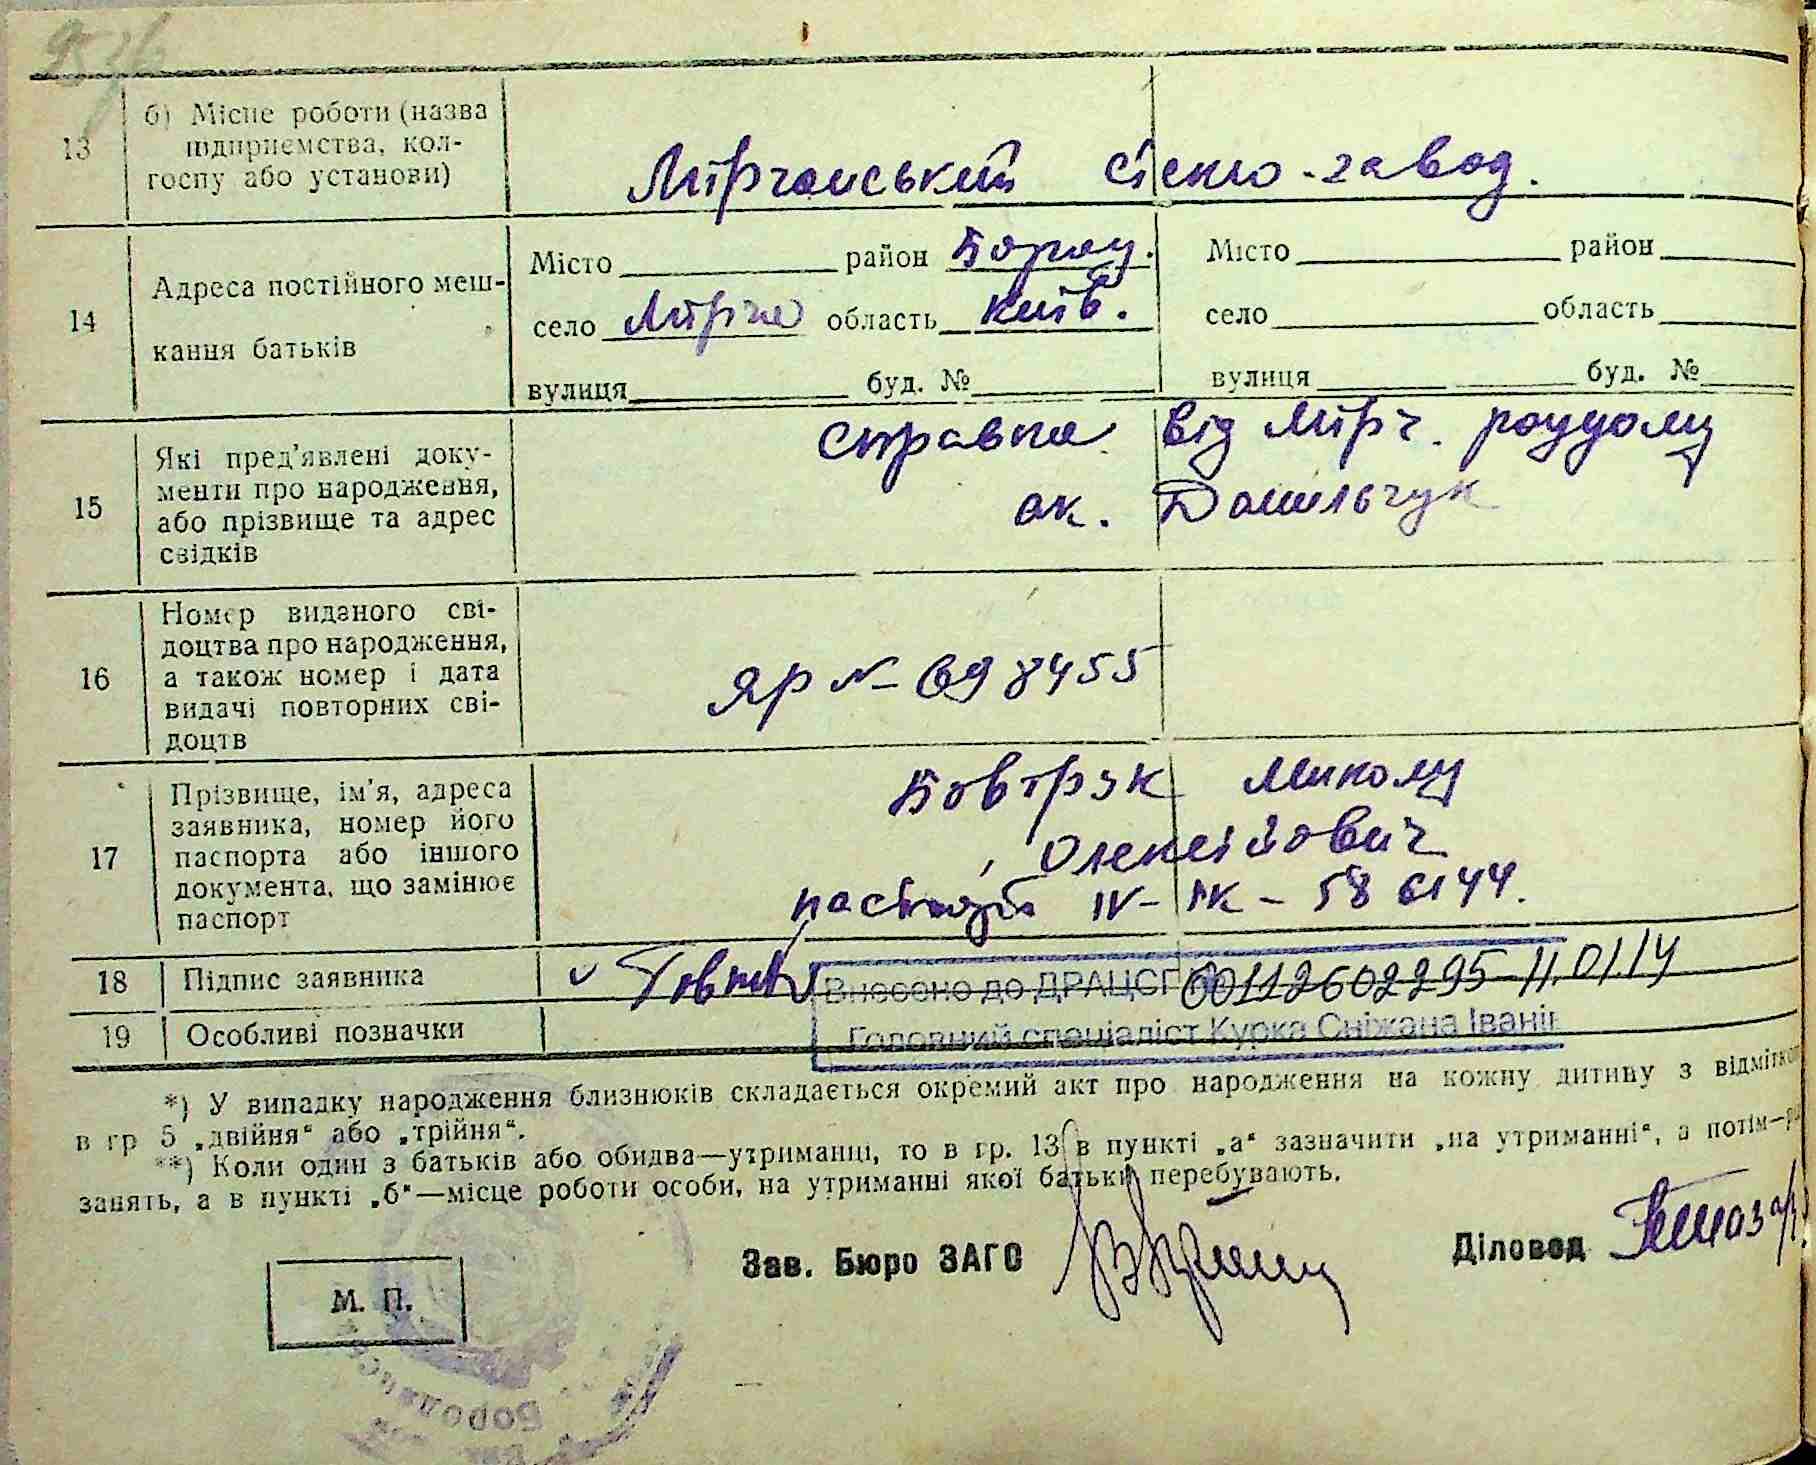 13
б) Місце роботи (назва
підприємства, кол-
госпу або установи)
Мірчанський скло-завод.
14
Адреса постійного меш-
кання батьків
Місто район Бород.
село Мірча область Київ.
вулиця буд. №
Місто район
село область
вулиця буд. №
15
Які пред'явлені доку-
менти про народження,
або прізвище та адрес
свідків
справка від Мірч. роддому
ак. Данильчук
16
Номер виданого сві-
доцтва про народження,
а також номер і дата
видачі повторних сві-
доцтв
ЯР № 698455
17
Прізвище, ім'я, адреса
заявника, номер його
паспорта або іншого
документа, що замінює
паспорт
Бовтрук Миколу
Олексійович
паспорт IV-ІК - 586144.
18
Підпис заявника
Внесено до ДРАЦСГ 00112602295-11.01.14
19
Особливі позначки
Головний спеціаліст Курка Сніжана Івані
*) У випадку народження близнюків складається окремий акт про народження на кожну дитину з відмітко
в гр 5 „двійня“ або „трійня“.
**) Коли один з батьків або обидва—утриманці, то в гр. 13 в пункті „а“ зазначити „на утриманні“, а потім—
занять, а в пункті „б“—місце роботи особи, на утриманні якої батьки перебувають.
Зав. Бюро ЗАГС
Діловод
М. П.